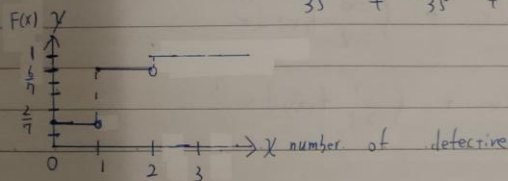 35 + 35 +
F(x) y
1
6/7
2/7
0 1 2 3 x number of defective